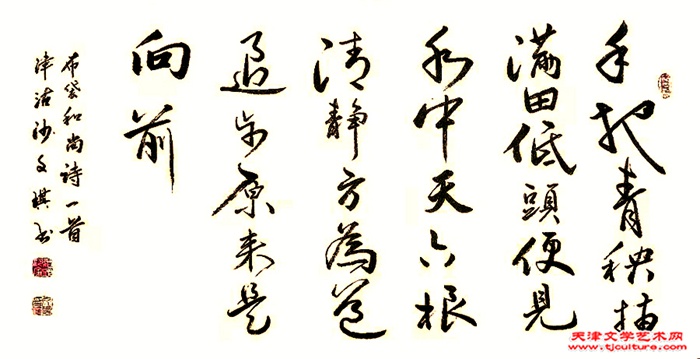 手把青秧插
满田低頭便見
水中天六根
清静方為道
退步原来是
向前
布袋和尚诗一首
津沽沙文书
天津文学艺术网
www.tjculture.com